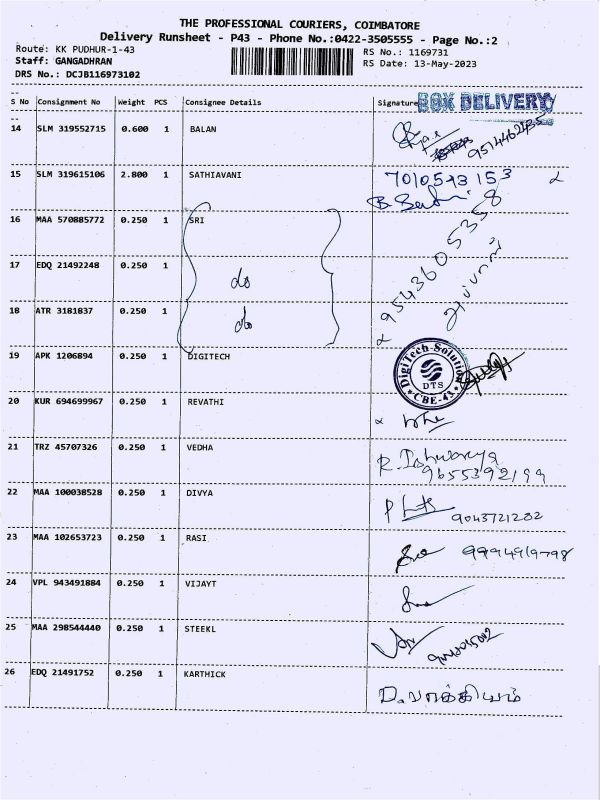 THE PROFESSIONAL COURIERS, COIMBATORE
Delivery Runsheet - P43 - Phone No.:0422-3505555 - Page No.:2
Route: KK PUDHUR-1-43
RS No.: 1169731
Staff: GANGADHRAN
RS Date: 13-May-2023
DRS No.: DCJB116973102
S No Consignment No Weight PCS Consignee Details Signature BOX DELIVERY
14 SLM 319552715 0.600 1 BALAN
15 SLM 319615106 2.800 1 SATHIAVANI 7010543153
16 MAA 570885772 0.250 1 SRI 9543605358
17 EDQ 21492248 0.250 1 do
18 ATR 3181837 0.250 1 do
19 APK 1206894 0.250 1 DIGITECH DigiTech-Solution DTS CBE-43
20 KUR 694699967 0.250 1 REVATHI
21 TRZ 45707326 0.250 1 VEDHA R. Ishwarya
9655392199
22 MAA 100038528 0.250 1 DIVYA 9043721202
23 MAA 102653723 0.250 1 RASI 9994919798
24 VPL 943491884 0.250 1 VIJAYT
25 MAA 298544440 0.250 1 STEEKL
26 EDQ 21491752 0.250 1 KARTHICK D. பாக்கியம்